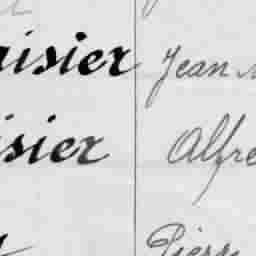 aisier Jean
isier Alfre
Pierr